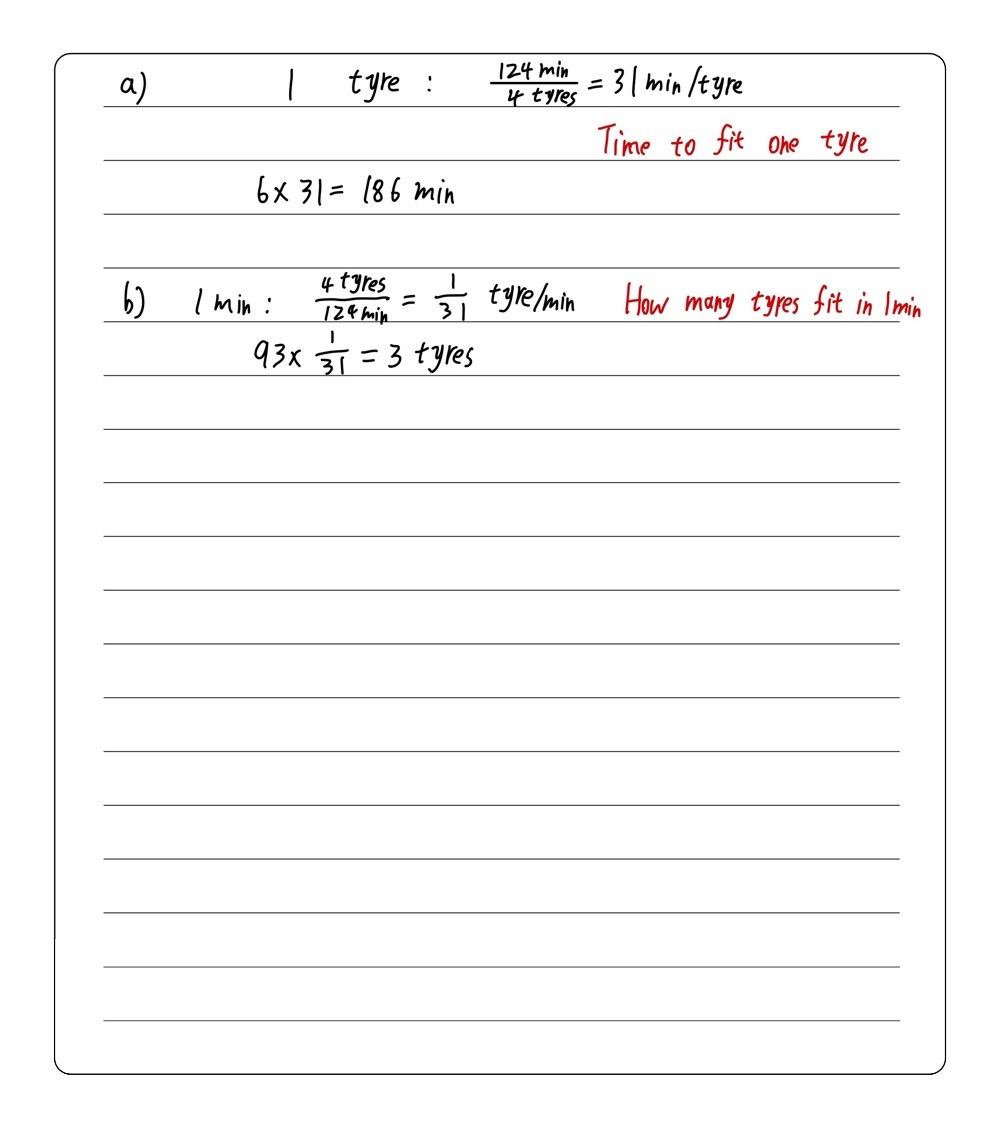 a) 1 tyre : 124 min / 4 tyres = 31 min/tyre
Time to fit one tyre
6 x 31 = 186 min
b) 1 min : 4 tyres / 124 min = 1/31 tyre/min How many tyres fit in 1 min
93 x 1/31 = 3 tyres